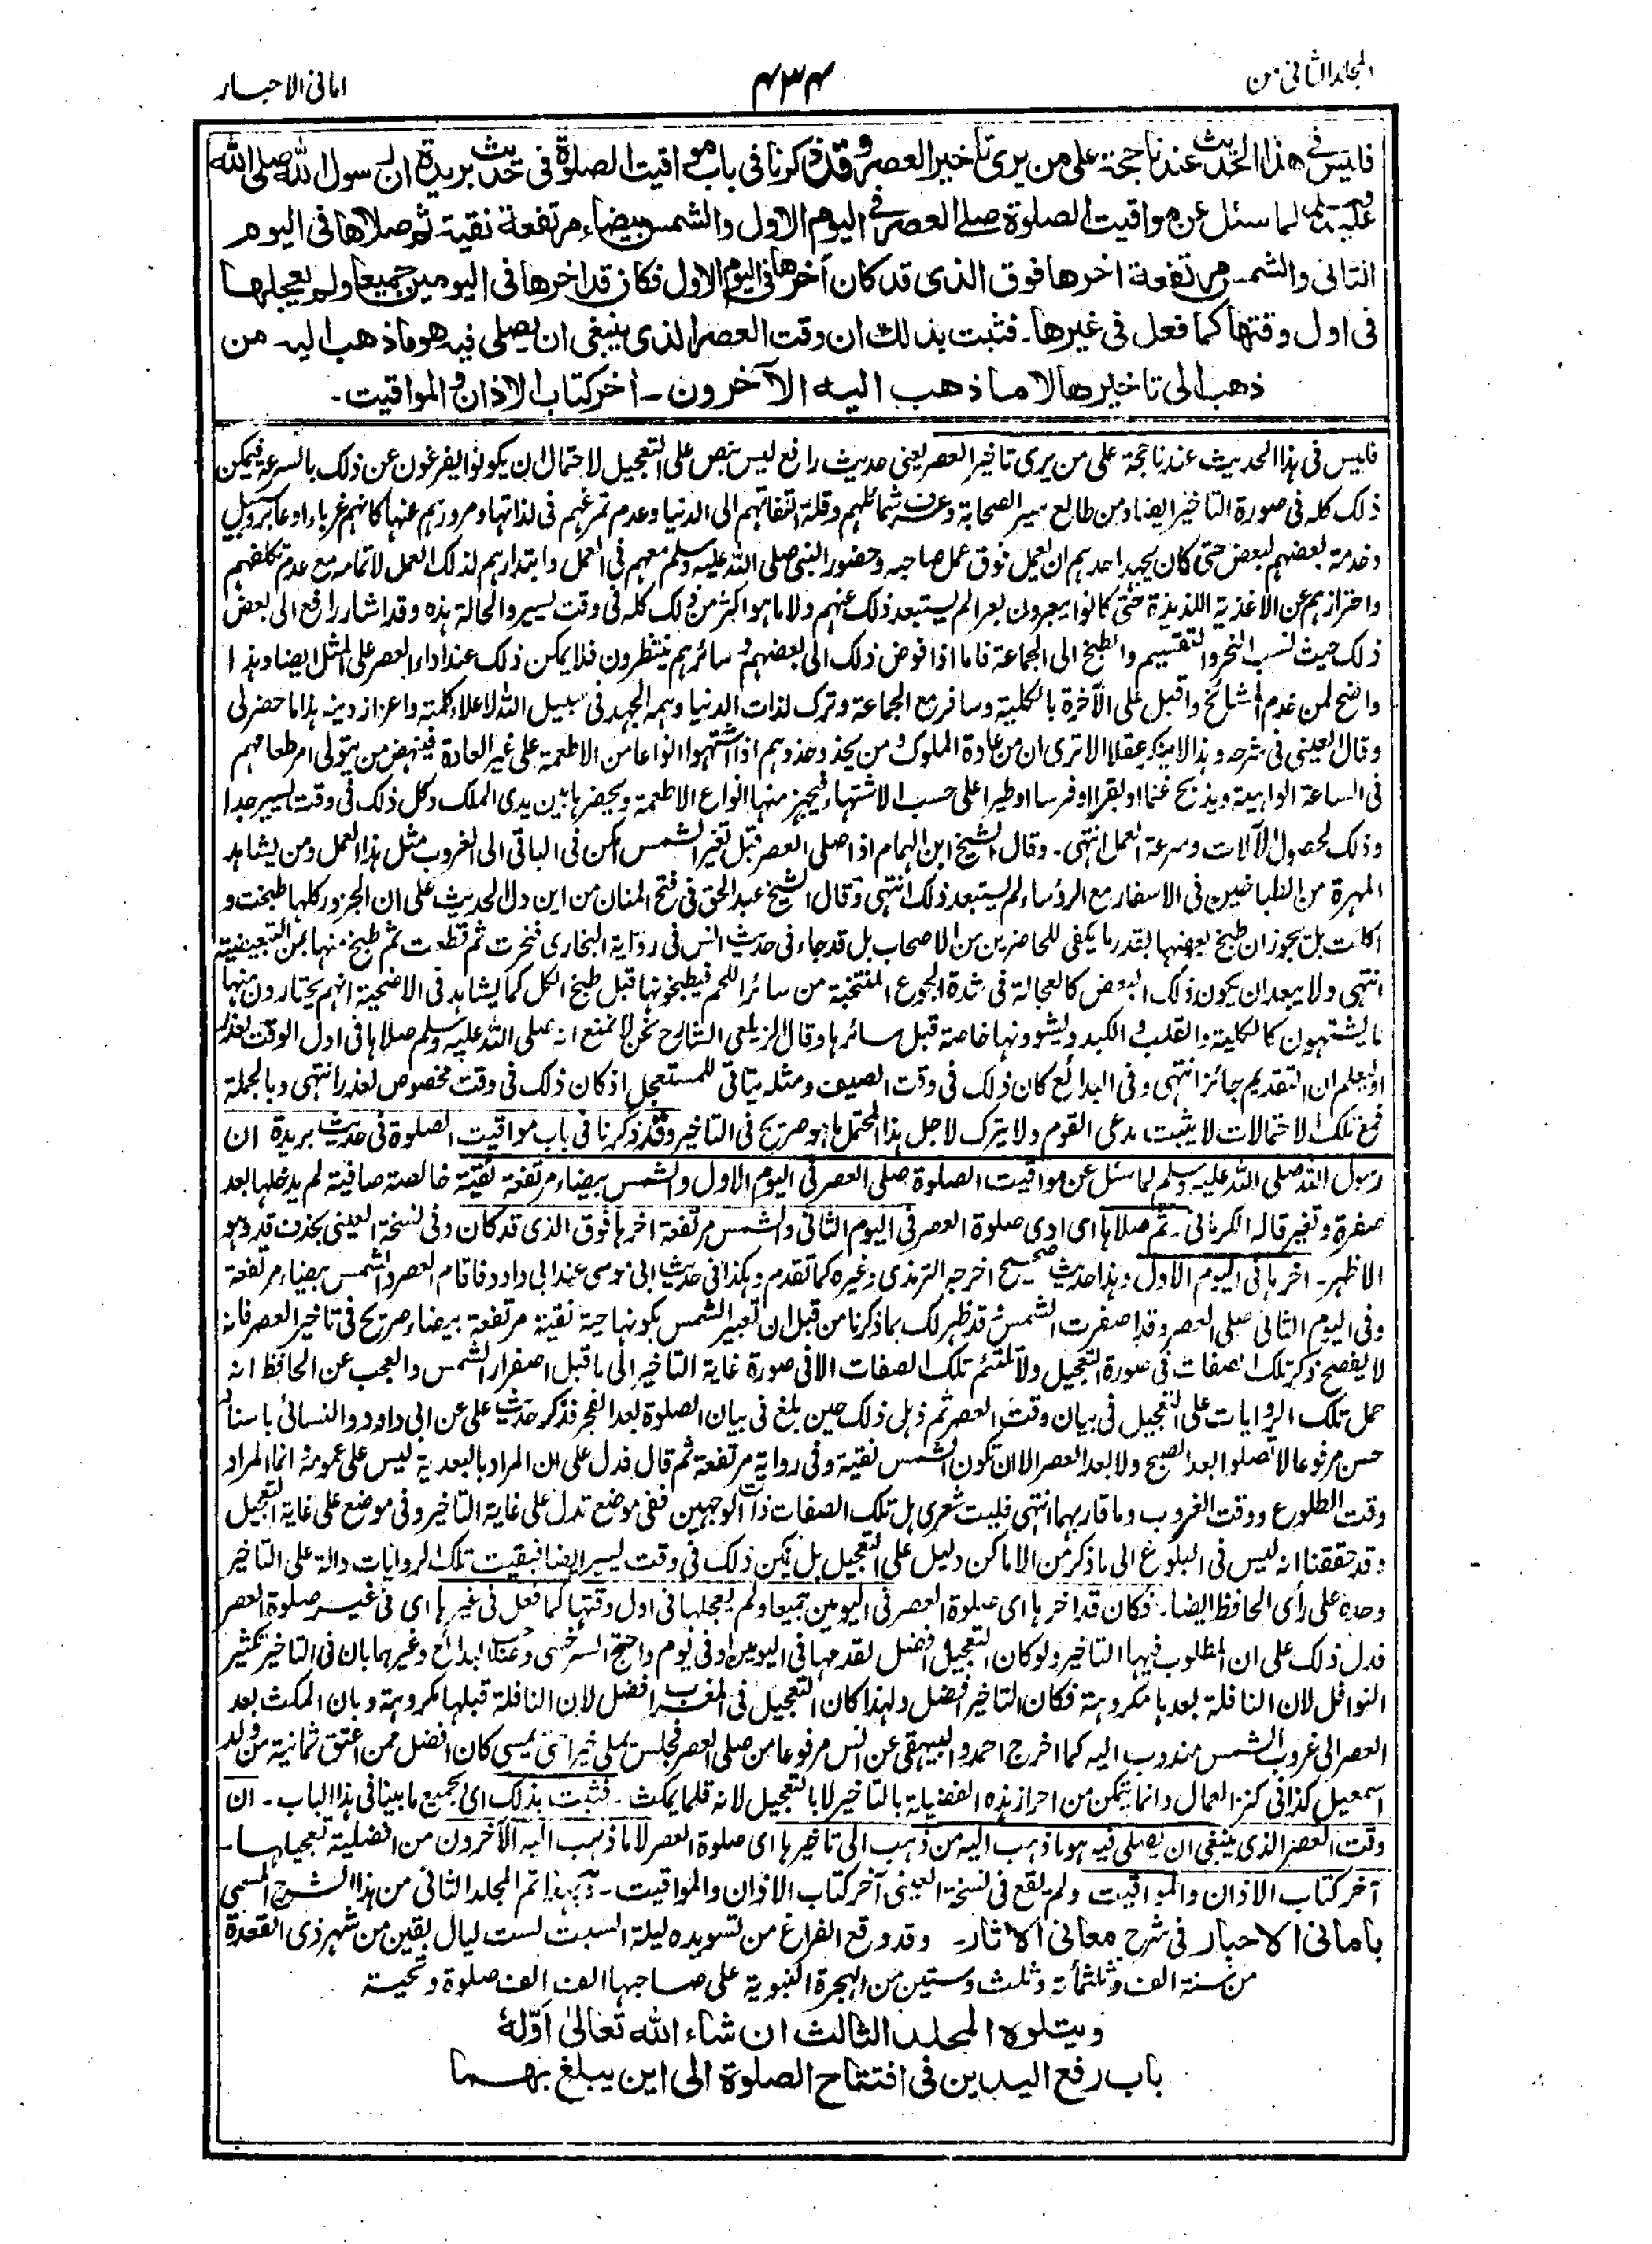 المجلد الثانى من
۴۳۴
امانى الاحبار
فليس فى هذا الحديث عندنا حجة على من يرى تأخير العصر وقد ذكرنا فى باب مواقيت الصلوة فى حديث بريدة ان رسول الله صلى الله
عليه وسلم لما سئل عن مواقيت الصلوة صلى العصر فى اليوم الاول والشمس بيضاء مرتفعة نقية ثم صلاها فى اليوم
الثانى والشمس مرتفعة اخرها فوق الذى قد كان أخرها فى اليوم الاول فكان قد اخرها فى اليومين جميعا ولم يعجلها
فى اول وقتها كما فعل فى غيرها۔ فثبت بذلك ان وقت العصر الذى ينبغى ان يصلى فيه هو ما ذهب اليه من
ذهب الى تاخيرها لا ما ذهب اليه الآخرون ۔ أخر كتاب الاذان والمواقيت ۔
فليس فى هذا الحديث عندنا حجة على من يرى تاخير العصر يعنى حديث رافع ليس بنص على التعجيل لاحتمال ان يكونوا يفرغون عن ذلك بالسرعة فيمكن
ذلك كله فى صورة التاخير ايضا ومن طالع سير الصحابة وعرف شمائلهم وقلة التفاتهم الى الدنيا وعدم تمرغهم فى لذاتها ومرورهم عنها كانهم غرباء او عابرو سبيل
وخدمة بعضهم لبعض حتى كان يجهد احدهم ان يعمل فوق عمل صاحبه وحضور النبى صلى الله عليه وسلم معهم فى العمل وابتدارهم لذلك العمل لاتمامه مع عدم تكلفهم
واحترازهم عن الاغذية اللذيذة حتى كانوا يبعرون بعرا لم يستبعد ذلك عنهم ولا ما هو اكثر من ذلك كله فى وقت يسير والحالة هذه وقد اشار رافع الى بعض
ذلك حيث نسب النحر والتقسيم والطبخ الى الجماعة فاما اذا فوض ذلك الى بعضهم وسائرهم ينتظرون فلا يمكن ذلك عند اداء العصر على المثل ايضا وهذا
واضح لمن خدم المشائخ واقبل على الآخرة بالكلية وسافر مع الجماعة وترك لذات الدنيا وهمه الجهد فى سبيل الله لاعلاء كلمته واعزاز دينه هذا ما حضر لى
وقال العينى فى شرحه وهذا لا ينكر عقلا الا ترى ان من عادة الملوك ومن يحذو حذوهم اذا اشتهوا انواعا من الاطعمة على غير العادة فينهض من يتولى امر طعامهم
فى الساعة الواهية ويذبح غنما او بقرا او فرسا او طيرا على حسب الاشتهاء فيجهز منها انواع الاطعمة ويحضرها بين يدى الملك وكل ذلك فى وقت يسير جدا
وذلك لحصول الآلات وسرعة العمل انتهى ۔ وقال الشيخ ابن الهمام اذا صلى العصر قبل تغير الشمس امكن فى الباقى الى الغروب مثل هذا العمل ومن يشاهد
المهرة من الطباخين فى الاسفار مع الرؤساء لم يستبعد ذلك انتهى وقال الشيخ عبد الحق فى فتح المنان من اين دل الحديث على ان الجزور كلها طبخت و
اكلت بل يجوز ان طبخ بعضها بقدر ما يكفى للحاضرين من الاصحاب بل قد جاء فى حديث انس فى رواية البخارى فنحرت ثم قطعت ثم طبخ منها بمن التبعيضية
انتهى ولا يبعد ان يكون ذلك البعض كالعجالة فى شدة الجوع المنتخبة من سائر اللحم فيطبخونها قبل طبخ الكل كما يشاهد فى الاضحية انهم يختارون منها
ما يشتهون كالكلية والقلب والكبد ويشوونها خاصة قبل سائرها وقال الزيلعى الشارح نحن لا نمنع انه صلى الله عليه وسلم صلاها فى اول الوقت لعذر
او ليعلم ان التقديم جائز انتهى وفى البدائع كان ذلك فى وقت الصيف ومثله يتاتى للمستعجل اذ كان ذلك فى وقت مخصوص لعذر انتهى وبالجملة
فمع تلك الاحتمالات لا يثبت مدعى القوم ولا يترك لاجل هذا المحتمل ما هو صريح فى التاخير وقد ذكرنا فى باب مواقيت الصلوة فى حديث بريدة ان
رسول الله صلى الله عليه وسلم لما سئل عن مواقيت الصلوة صلى العصر فى اليوم الاول والشمس بيضاء مرتفعة نقية خالصة صافية لم يدخلها بعد
صفرة وتغير قاله الكرمانى ۔ ثم صلاها اى ادى صلوة العصر فى اليوم الثانى والشمس مرتفعة اخرها فوق الذى قد كان وفى نسخة العينى بحذف قد وهو
الاظهر ۔ اخرها فى اليوم الاول وهذا حديث صحيح اخرجه الترمذى وغيره كما تقدم وهكذا فى حديث ابى موسى عند ابى داود فاقام العصر والشمس بيضاء مرتفعة
وفى اليوم الثانى صلى العصر وقد اصفرت الشمس قد ظهر لك بما ذكرنا من قبل ان تعبير الشمس بكونها حية نقية مرتفعة بيضاء صريح فى تاخير العصر فانه
لا يفصح ذكر تلك الصفات فى صورة التعجيل ولا تلتئم تلك الصفات الا فى صورة غاية التاخير الى ما قبل اصفرار الشمس والعجب عن الحافظ انه
حمل تلك الروايات على التعجيل فى بيان وقت العصر ثم ذهل ذلك حين بلغ فى بيان الصلوة بعد الفجر فذكر حديث على عن ابى داود والنسائى باسناد
حسن مرفوعا لا تصلوا بعد الصبح ولا بعد العصر الا ان تكون الشمس نقية وفى رواية مرتفعة ثم قال فدل على ان المراد بالبعدية ليس على عمومه انما المراد
وقت الطلوع ووقت الغروب وما قاربهما انتهى فليت شعرى هل تلك الصفات ذات الوجهين ففى موضع تدل على غاية التاخير وفى موضع على غاية التعجيل
وقد حققنا انه ليس فى البلوغ الى ما ذكر من الاماكن دليل على التعجيل بل يمكن ذلك فى وقت يسير ايضا فبقيت تلك الروايات دالة على التاخير
وحده على رأى الحافظ ايضا ۔ فكان قد اخرها اى صلوة العصر فى اليومين جميعا ولم يعجلها فى اول وقتها كما فعل فى غيرها اى فى غير صلوة العصر
فدل ذلك على ان المطلوب فيها التاخير ولو كان التعجيل افضل لقدمها فى اليومين او فى يوم واحتج السرخسى وصاحب البدائع وغيرهما بان فى التاخير تكثير
النوافل لان النافلة بعدها مكروهة فكان التاخير افضل ولهذا كان التعجيل فى المغرب افضل لان النافلة قبلها مكروهة وبان المكث بعد
العصر الى غروب الشمس مندوب اليه كما اخرج احمد والبيهقى عن انس مرفوعا من صلى العصر فجلس يملى خيرا حتى يمسى كان افضل ممن اعتق ثمانية من ولد
اسمعيل كذا فى كنز العمال وانما يتمكن من احراز هذه الفضيلة بالتاخير لا بالتعجيل لانه قلما يمكث ۔ فثبت بذلك اى بجميع ما بينا فى هذا الباب ۔ ان
وقت العصر الذى ينبغى ان يصلى فيه هو ما ذهب اليه من ذهب الى تاخيرها اى صلوة العصر لا ما ذهب اليه الآخرون من افضلية تعجيلها ۔
آخر كتاب الاذان والمواقيت ولم يقع فى نسخة العينى آخر كتاب الاذان والمواقيت ۔ وبهذا تم المجلد الثانى من هذا الشرح المسمى
بامانى الاحبار فى شرح معانى الاثار ۔ وقد وقع الفراغ من تسويده ليلة السبت لست ليال بقين من شهر ذى القعدة
من سنة الف وثلثمأة وثلث وستين من الهجرة النبوية على صاحبها الف الف صلوة وتحية
ويتلوه المجلد الثالث ان شاء الله تعالى اوّلهٗ
باب رفع اليدين فى افتتاح الصلوة الى اين يبلغ بهما